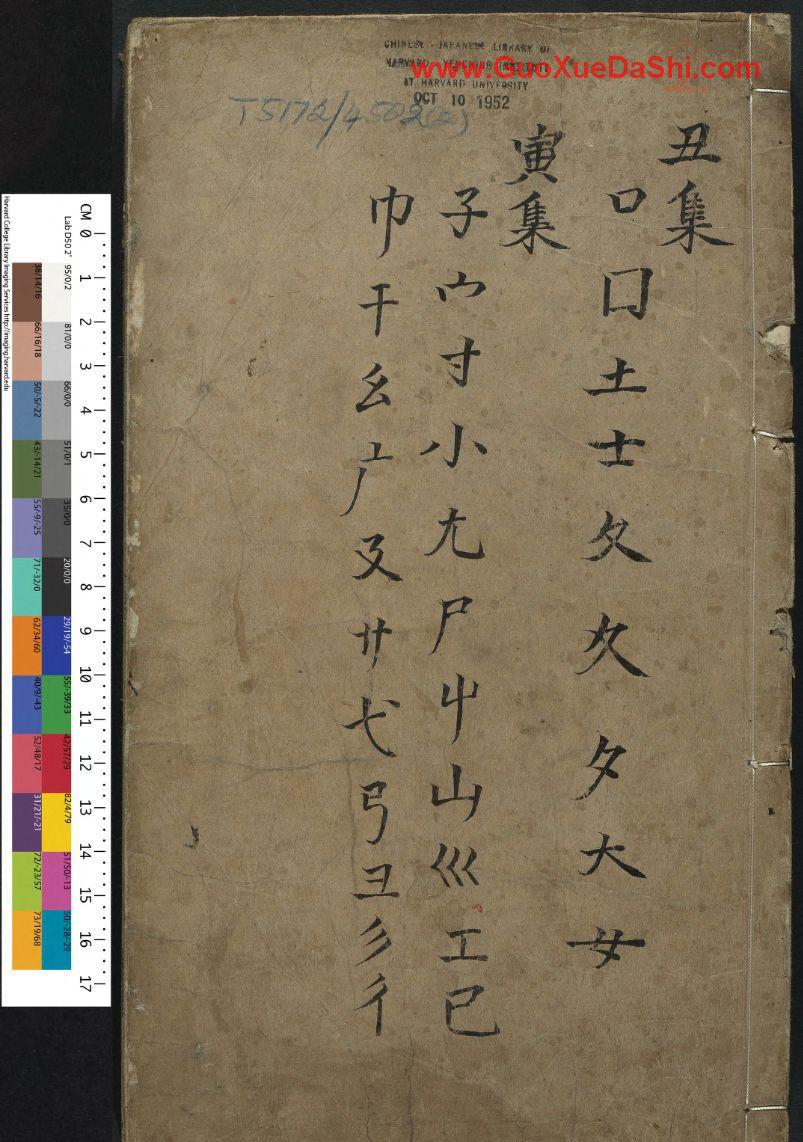 CHINESE - JAPANESE LIBRARY OF
HARVARD - YENCHING INSTITUTE
AT HARVARD UNIVERSITY
OCT 10 1952
www.GuoXueDaShi.com
T5172/4502(2)
丑集
口囗土士夂夊夕大女
寅集
子宀寸小尢尸屮山巛工己
巾干幺广廴廾弋弓彐彡彳
CM 0 1 2 3 4 5 6 7 8 9 10 11 12 13 14 15 16 17
Lab D50 2˚
95/0/2
81/0/0
66/0/0
51/0/1
35/0/0
20/0/0
29/19/-54
55/-39/33
42/57/29
82/4/79
51/50/-13
50/-28/-29
38/14/16
66/16/18
50/-5/-22
43/-14/21
55/-9/-25
71/-32/0
62/34/60
40/9/-43
52/48/17
31/21/-21
72/-23/57
73/19/68
Harvard College Library Imaging Services http://imaging.harvard.edu